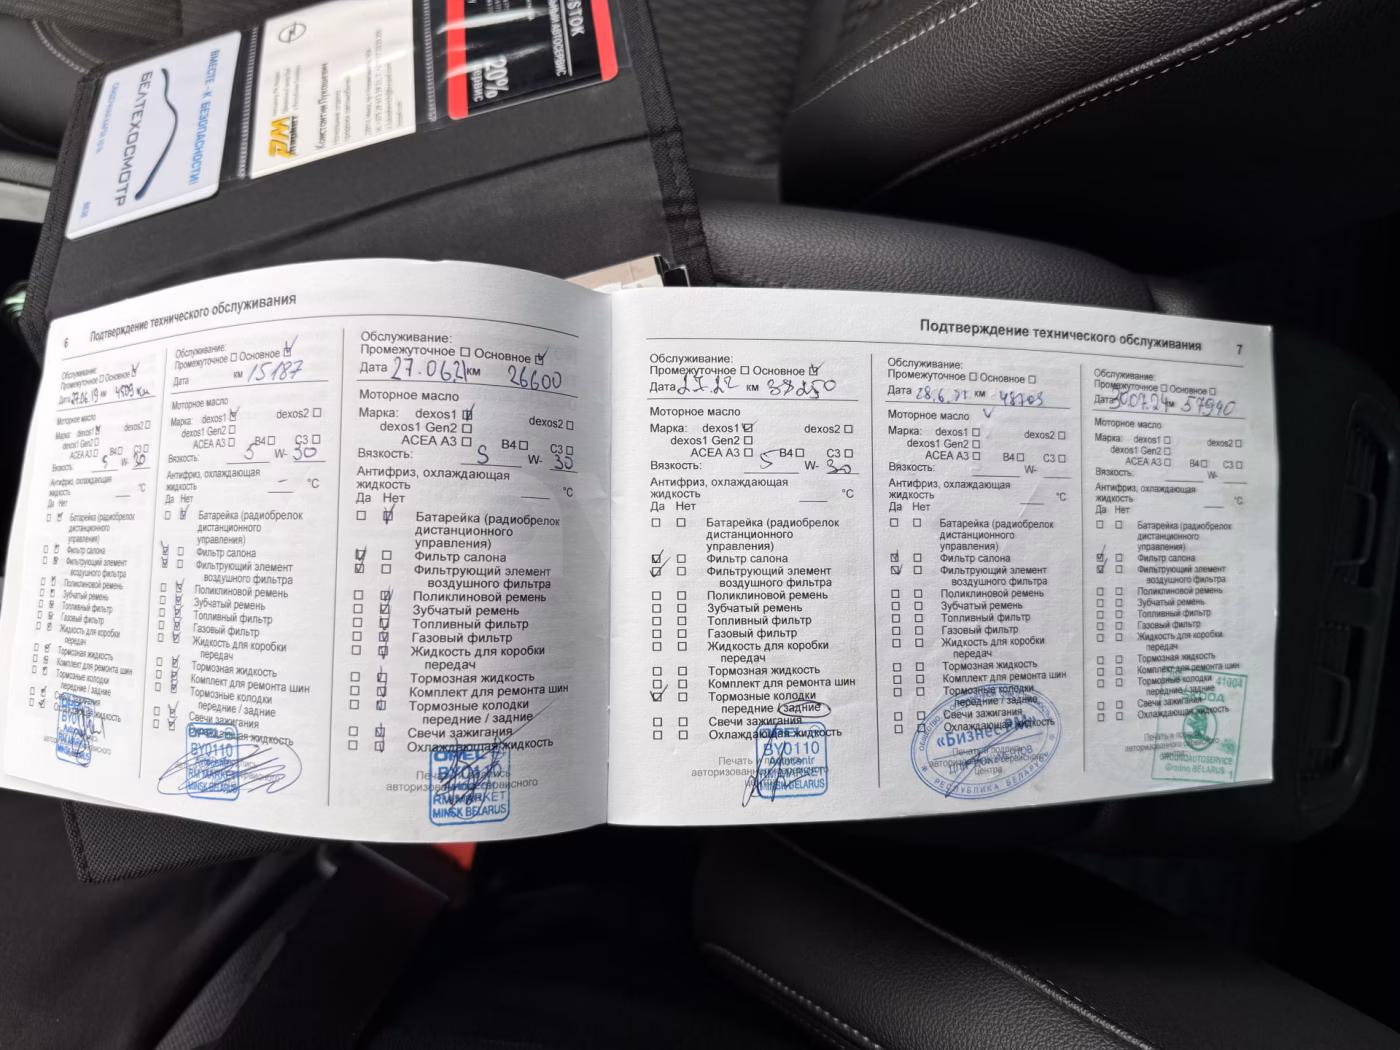 ВМЕСТЕ - К БЕЗОПАСНОСТИ!
БЕЛТЕХОСМОТР
Константин Лукошкин
20%
6 Подтверждение технического обслуживания
Обслуживание:
Промежуточное Основное
Дата 27.06.19 км 4509 км
Моторное масло
Марка: dexos1 dexos2
dexos1 Gen2
ACEA A3 B4 C3
Вязкость: 5 W- 30
Антифриз, охлаждающая
жидкость °C
Да Нет
Батарейка (радиобрелок
дистанционного
управления)
Фильтр салона
Фильтрующий элемент
воздушного фильтра
Поликлиновой ремень
Зубчатый ремень
Топливный фильтр
Газовый фильтр
Жидкость для коробки
передач
Тормозная жидкость
Комплект для ремонта шин
Тормозные колодки
передние / задние
Свечи зажигания
Охлаждающая жидкость
Обслуживание:
Промежуточное Основное
Дата км 15187
Моторное масло
Марка: dexos1 dexos2
dexos1 Gen2
ACEA A3 B4 C3
Вязкость: 5 W- 30
Антифриз, охлаждающая
жидкость °C
Да Нет
Батарейка (радиобрелок
дистанционного
управления)
Фильтр салона
Фильтрующий элемент
воздушного фильтра
Поликлиновой ремень
Зубчатый ремень
Топливный фильтр
Газовый фильтр
Жидкость для коробки
передач
Тормозная жидкость
Комплект для ремонта шин
Тормозные колодки
передние / задние
Свечи зажигания
Охлаждающая жидкость
BY0110
RM MARKET
MINSK BELARUS
Обслуживание:
Промежуточное Основное
Дата 27.06.21 км 26600
Моторное масло
Марка: dexos1 dexos2
dexos1 Gen2
ACEA A3 B4 C3
Вязкость: 5 W- 30
Антифриз, охлаждающая
жидкость °C
Да Нет
Батарейка (радиобрелок
дистанционного
управления)
Фильтр салона
Фильтрующий элемент
воздушного фильтра
Поликлиновой ремень
Зубчатый ремень
Топливный фильтр
Газовый фильтр
Жидкость для коробки
передач
Тормозная жидкость
Комплект для ремонта шин
Тормозные колодки
передние / задние
Свечи зажигания
Охлаждающая жидкость
OPEL
RM MARKET
MINSK BELARUS
Подтверждение технического обслуживания 7
Обслуживание:
Промежуточное Основное
Дата км 38250
Моторное масло
Марка: dexos1 dexos2
dexos1 Gen2
ACEA A3 B4 C3
Вязкость: 5 W- 30
Антифриз, охлаждающая
жидкость °C
Да Нет
Батарейка (радиобрелок
дистанционного
управления)
Фильтр салона
Фильтрующий элемент
воздушного фильтра
Поликлиновой ремень
Зубчатый ремень
Топливный фильтр
Газовый фильтр
Жидкость для коробки
передач
Тормозная жидкость
Комплект для ремонта шин
Тормозные колодки
передние / задние
Свечи зажигания
Охлаждающая жидкость
BY0110
Autocentr
RM MARKET
MINSK BELARUS
Обслуживание:
Промежуточное Основное
Дата км
Моторное масло
Марка: dexos1 dexos2
dexos1 Gen2
ACEA A3 B4 C3
Вязкость: W-
Антифриз, охлаждающая
жидкость °C
Да Нет
Батарейка (радиобрелок
дистанционного
управления)
Фильтр салона
Фильтрующий элемент
воздушного фильтра
Поликлиновой ремень
Зубчатый ремень
Топливный фильтр
Газовый фильтр
Жидкость для коробки
передач
Тормозная жидкость
Комплект для ремонта шин
Тормозные колодки
передние / задние
Свечи зажигания
Охлаждающая жидкость
РЕСПУБЛИКА БЕЛАРУСЬ
Обслуживание:
Промежуточное Основное
Дата 30.07.24 км 57940
Моторное масло
Марка: dexos1 dexos2
dexos1 Gen2
ACEA A3 B4 C3
Вязкость: W-
Антифриз, охлаждающая
жидкость °C
Да Нет
Батарейка (радиобрелок
дистанционного
управления)
Фильтр салона
Фильтрующий элемент
воздушного фильтра
Поликлиновой ремень
Зубчатый ремень
Топливный фильтр
Газовый фильтр
Жидкость для коробки
передач
Тормозная жидкость
Комплект для ремонта шин
Тормозные колодки
передние / задние
Свечи зажигания
Охлаждающая жидкость
41004
ŠKODA
GRODNOAUTOSERVICE
Grodno BELARUS